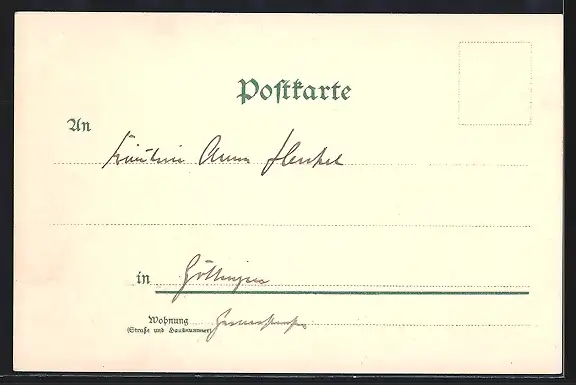 Postkarte
An
Fräulein Anna Henkel
in Göttingen
Wohnung
(Straße und Hausnummer)